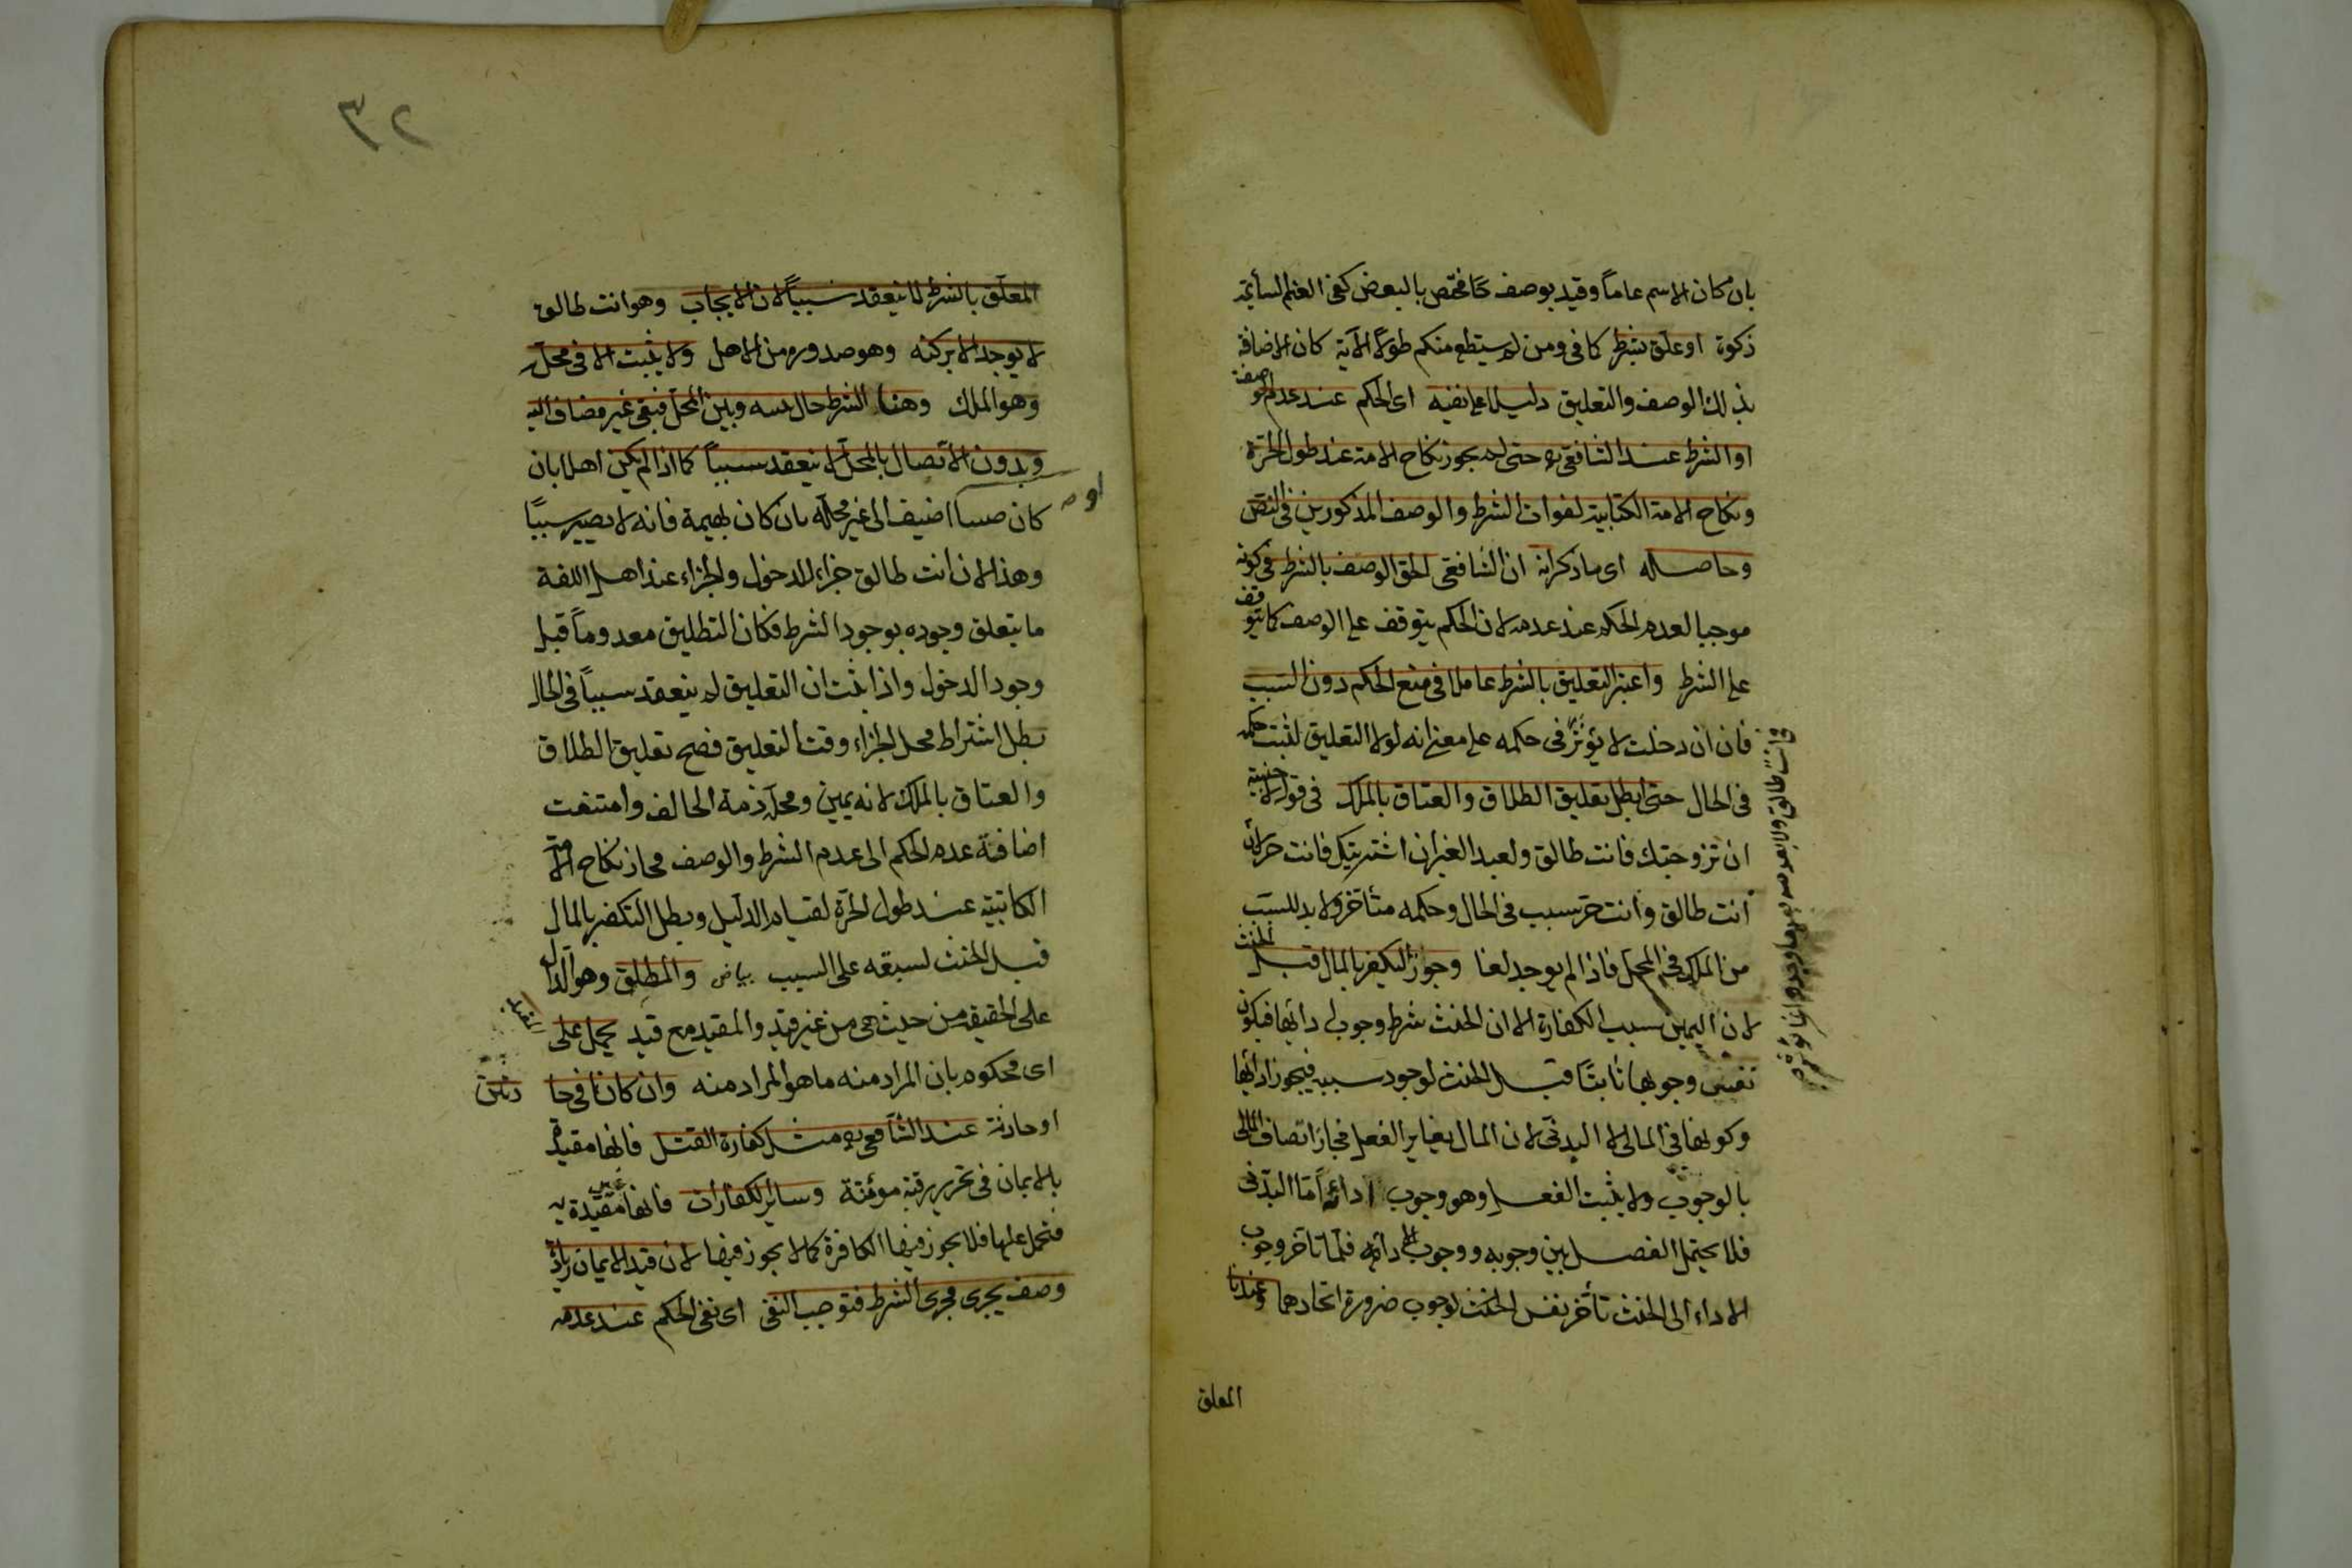 بان كان الاسم عاماً وقيد بوصف خاص مختص بالبعض كفى الغنم السائمة
زكوة او علق بشرط كما فى ومن لم يستطع منكم طولاً الآية كان الاضافة
بذلك الوصف والتعليق دليلا على نفيه اى الحكم عند عدم الوصف
او الشرط عند الشافعى ره حتى لم يجوز نكاح الامة عند طول الحرة
ونكاح الامة الكتابية لفوات الشرط والوصف المذكورين فى النص
وحاصله اى ما ذكر انه ان الشافعى الحق الوصف بالشرط فى كونه
موجبا لعدم الحكم عند عدمه لان الحكم يتوقف على الوصف كما يتوقف
على الشرط واعتبر التعليق بالشرط عاملا فى منع الحكم دون السبب
فان ان دخلت لا يؤثر فى حكمه على معنى انه لولا التعليق لثبت حكمه
فى الحال حتى ابطل تعليق الطلاق والعتاق بالملك فى قوله لاجنبية
ان تزوجتك فانت طالق ولعبد الغير ان اشتريتك فانت حر لان
انت طالق وانت حر سبب فى الحال وحكمه متأخر ولا بد للسبب
من الملك فى المحل فاذا لم يوجد لغا وجوز التكفير بالمال قبل الحنث
لان اليمين سبب الكفارة الا ان الحنث شرط وجوب ادائها فيكون
نفس وجوبها ثابتاً قبل الحنث لوجود سببه فيجوز ادائها
وكونها فى المالى لا البدنى لان المال يغاير الفعل فجاز اتصاف المالى
بالوجوب ولا يثبت الفعل وهو وجوب ادائه اما البدنى
فلا يحتمل الفصل بين وجوبه ووجوب ادائه فلما تاخر وجوب
الاداء الى الحنث تأخر نفس الوجوب ضرورة اتحادهما وعندنا
المعلق
٣٢
المعلق بالشرط لا ينعقد سبباً لان الايجاب وهو انت طالق
لا يوجد الا بركنه وهو صدوره من الاهل ولا يثبت الا فى محله
وهو الملك وهنا الشرط حال بينه وبين المحل فبقى غير مضاف اليه
وبدون الاتصال بالمحل لا ينعقد سبباً كما اذا لم يكن اهلا بان
كان صبيا اضيف الى غير محله بان كان بهيمة فانه لا يصير سبباً
او
وهذا لان انت طالق جزاء للدخول والجزاء عند اهل اللغة
ما يتعلق وجوده بوجود الشرط فكان التطليق معدوماً قبل
وجود الدخول واذا ثبت ان التعليق لم ينعقد سبباً فى الحال
بطل اشتراط محل الجزاء وقت التعليق فصح تعليق الطلاق
والعتاق بالملك لانه يمين ومحله ذمة الحالف وامتنعت
اضافة عدم الحكم الى عدم الشرط والوصف فجاز نكاح الامة
الكتابية عند طول الحرة لقيام الدليل وبطل التكفير بالمال
قبل الحنث لسبقه على السبب بياض والمطلق وهو الدال
على الحقيقة من حيث هى من غير قيد والمقيد مع قيد يحمل على
المقيد
اى محكوم بان المراد منه ما هو المراد منه وان كانا فى حا دثتين
او حادثة عند الشافعى ره مثل كفارة القتل فانها مقيدة
بالايمان فى تحرير رقبة مؤمنة وسائر الكفارات فانها غير مقيدة به
فتحمل عليها فلا يجوز فيها الكافرة كما لا يجوز فيها لان قيد الايمان زيادة
وصف يجرى مجرى الشرط فتوجب النفى اى نفى الحكم عند عدمه